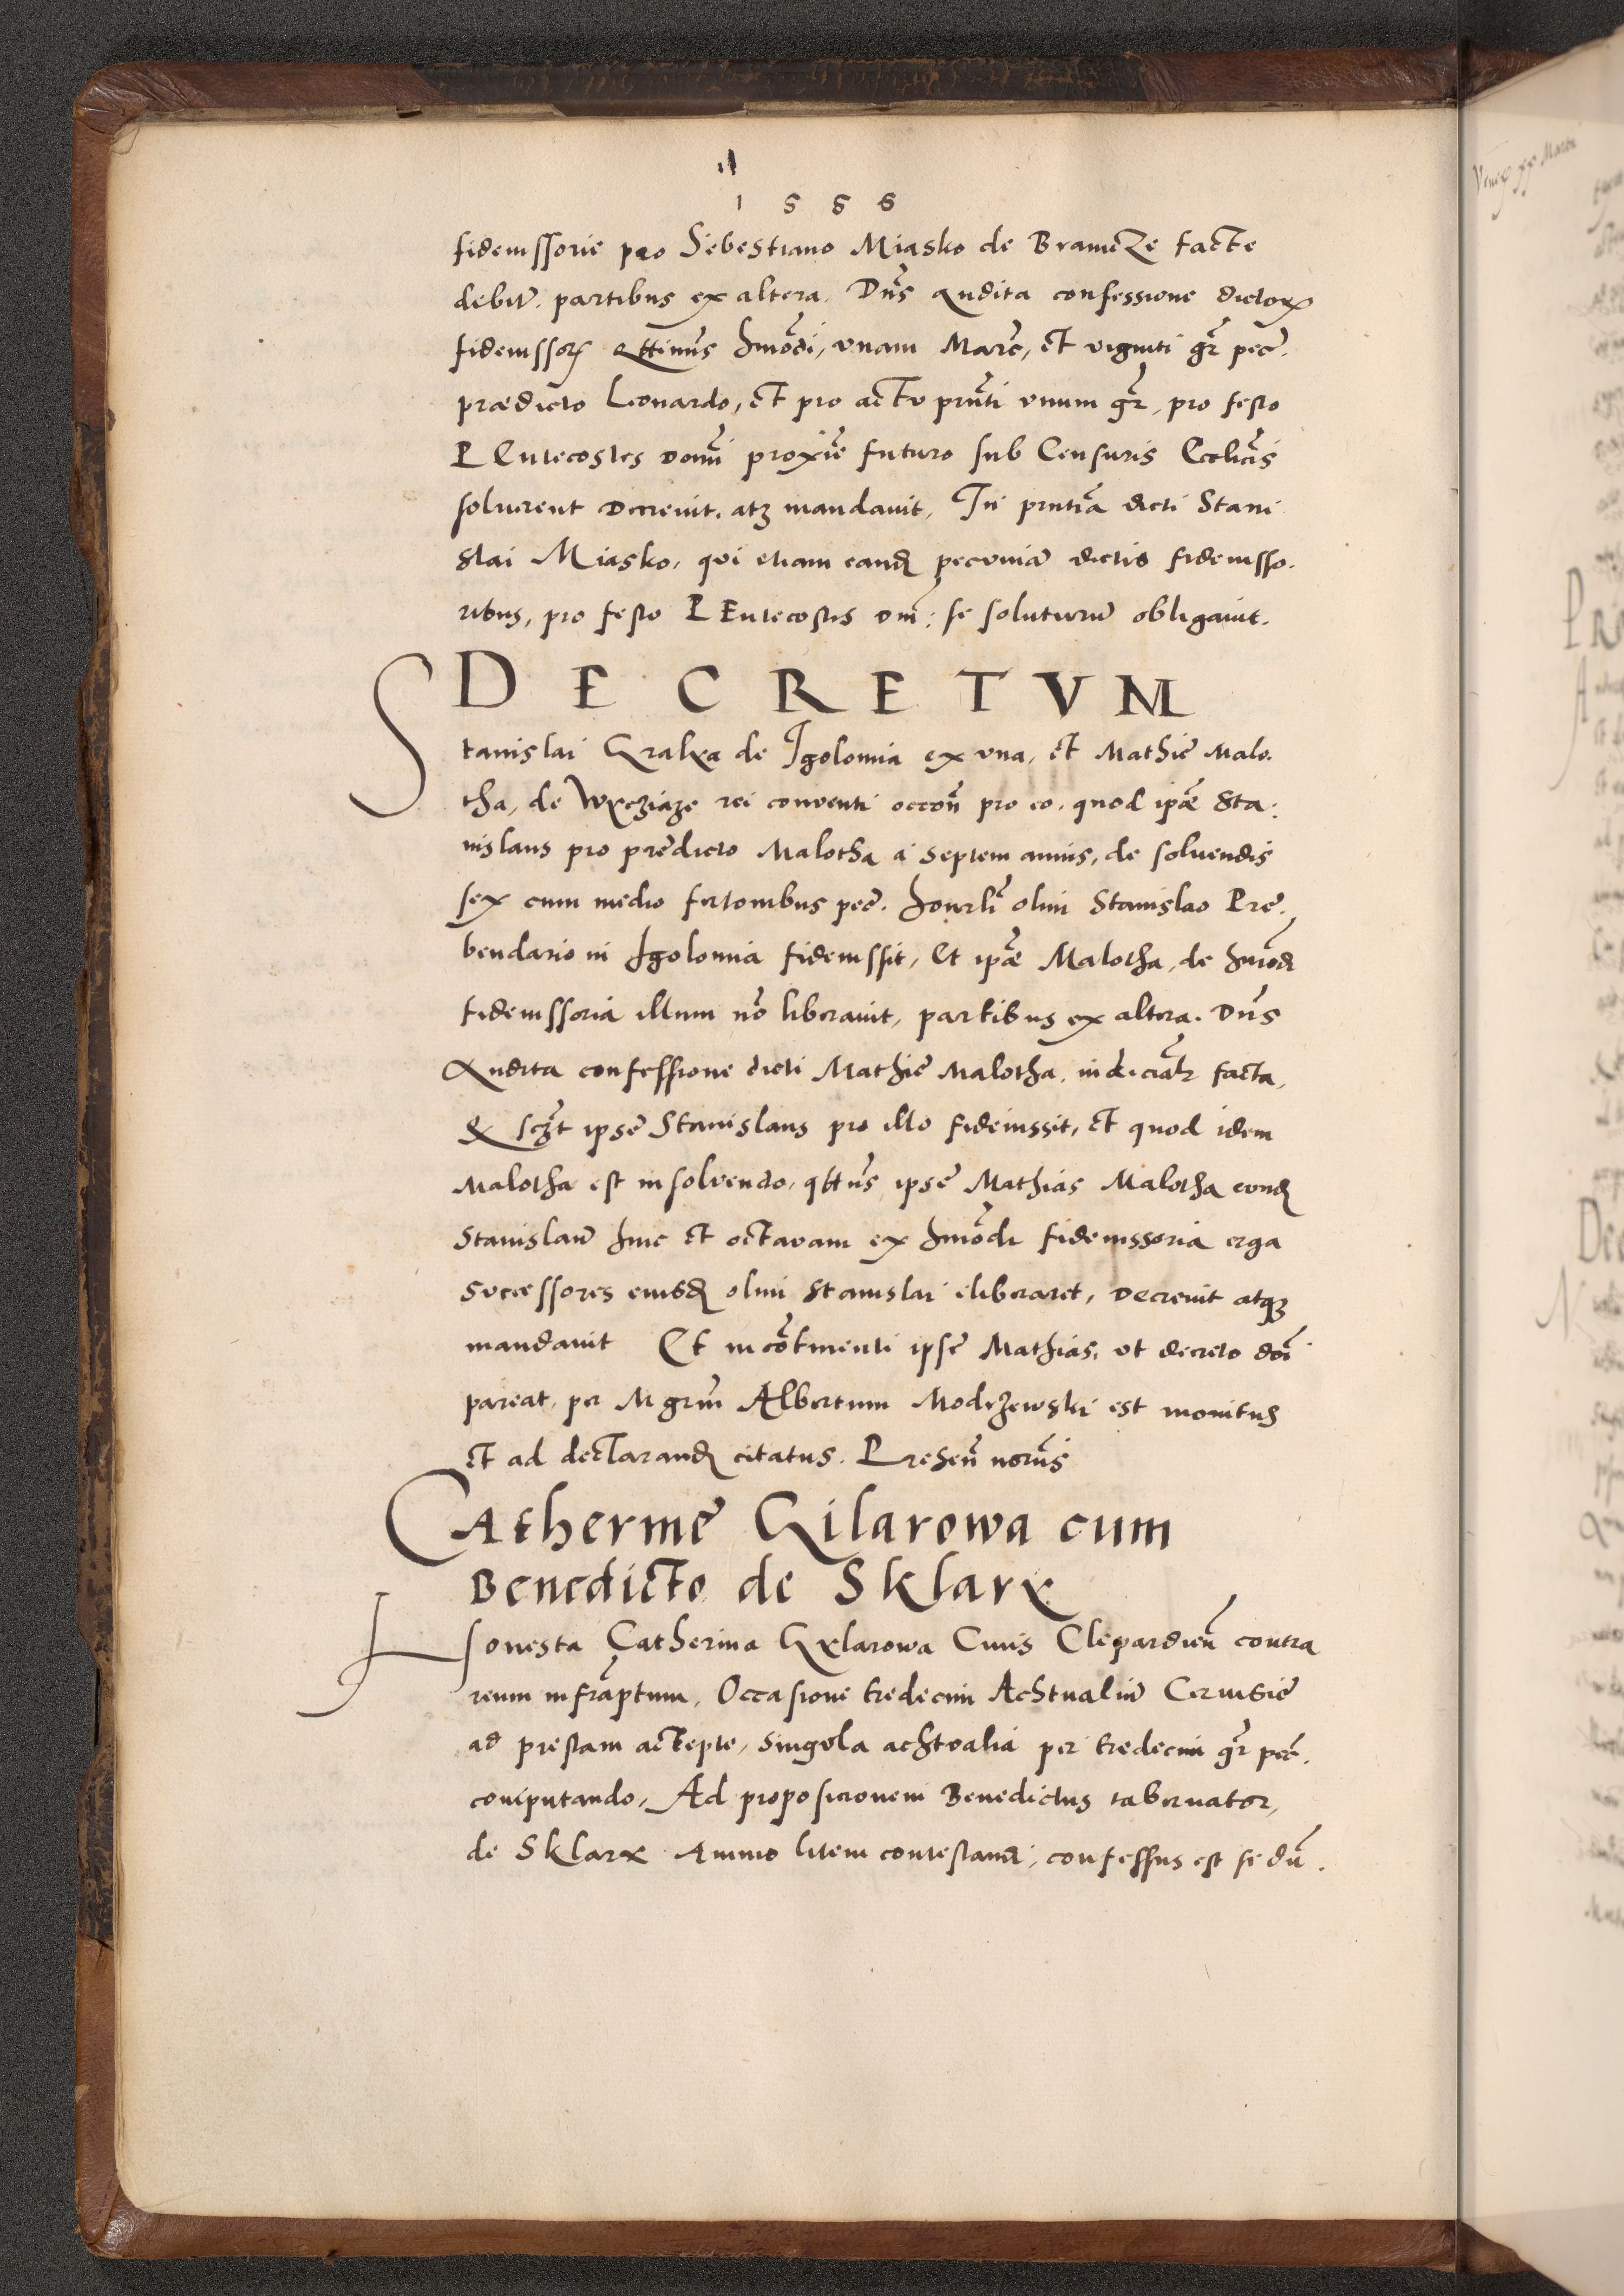 1 5 5 6
fideiussorie pro Sebestiano Miasko de Bramcze facte
debit̃. partibus ex altera. Dñs audita confessione dictoꝝ
fideiussoꝝ qttinũs hmõdi, vnam Marc̃, et viginti gr̃ pec̃.
prædicto Leonardo, et pro actu prñti vnum gr̃, pro festo
PEntecostes Domĩ proxiẽ futuro sub Censuris Ecclicis̃
soluerent Decreuit. atqꝫ mandauit, In prñtia dicti Stani
slai Miasko, qui etiam eandꝫ pecuniã dictis fideiusso.
ribus, pro festo PEntecostes Dnĩ: se soluturũ obligauit.
DECRETVM
Stanislai Gralxa de Igolomia ex vna, et Mathie Malo.
tha, de Wxcziąze rei conuenti occoñ pro eo, quod ipse Sta:
nislaus pro predicto Malotha a septem annis, de soluendis
sex cum medio fertonibus pec̃. honorli olim Stanislao Pre.
bendario in Igolomia fideiussit, Et ipse Malotha, de hmõdi
fideiussoria illum nõ liberauit, partibus ex altera. Dñs
Audita confessione dicti Mathie Malotha. iudicialr̃ facta,
Q sczt ipse Stanislaus pro illo fideiussit, et quod idem
Malotha est in soluendo, qttñs ipse Mathias Malotha eundꝫ
Stanislaũ hinc et octauam ex hmõdi fideiussoria erga
successores eiusdꝫ olim Stanislai eliberaret, Decreuit atqꝫ
mandauit Et in cõtinenti ipse Mathias, vt decreto doĩ
pareat, per Mgrm̃ Albertum Modrzewski est monitus
et ad declarandꝫ citatus. Preseñ norũs
Catherine Gilarowa cum
Benedicto de Sklarx
Honesta Catherina Gxlarowa Ciuis Cleparđieñ contra
reum infrãptum, Occasione tredecim Achtualiũ Ceruisie
ad prestam accepte, singula achtualia per tredecim gr̃ pec̃.
computando, Ad proposicionem Benedictus tabernator,
de Sklarx Animo litem contestandi, confessus est se dũ.